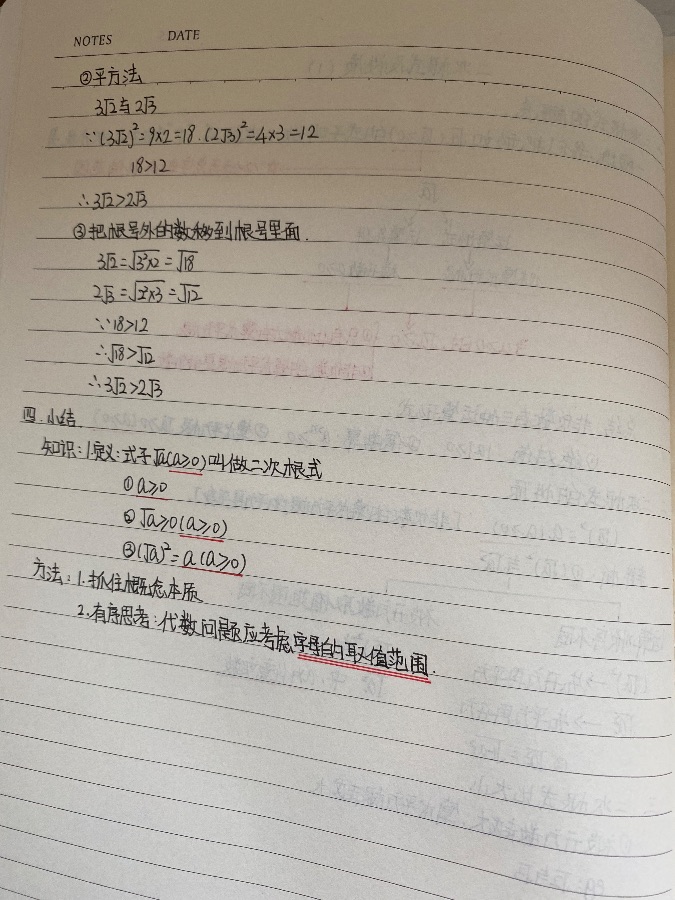 NOTES DATE
②平方法
3√2与2√3
∵(3√2)²=9×2=18.(2√3)²=4×3=12
18>12
∴3√2>2√3
③把根号外的数移到根号里面.
3√2=√3²×2=√18
2√3=√2²×3=√12
∵18>12
∴√18>√12
∴3√2>2√3
四.小结
知识:1.定义:式子√a(a≥0)叫做二次根式
①a≥0
②√a≥0(a≥0)
③(√a)²=a(a≥0)
方法:1.抓住概念本质
2.有序思考:代数问题应考虑字母的取值范围.